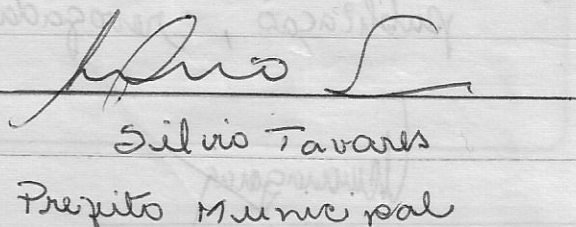 Silvio Tavares
Prefeito Municipal